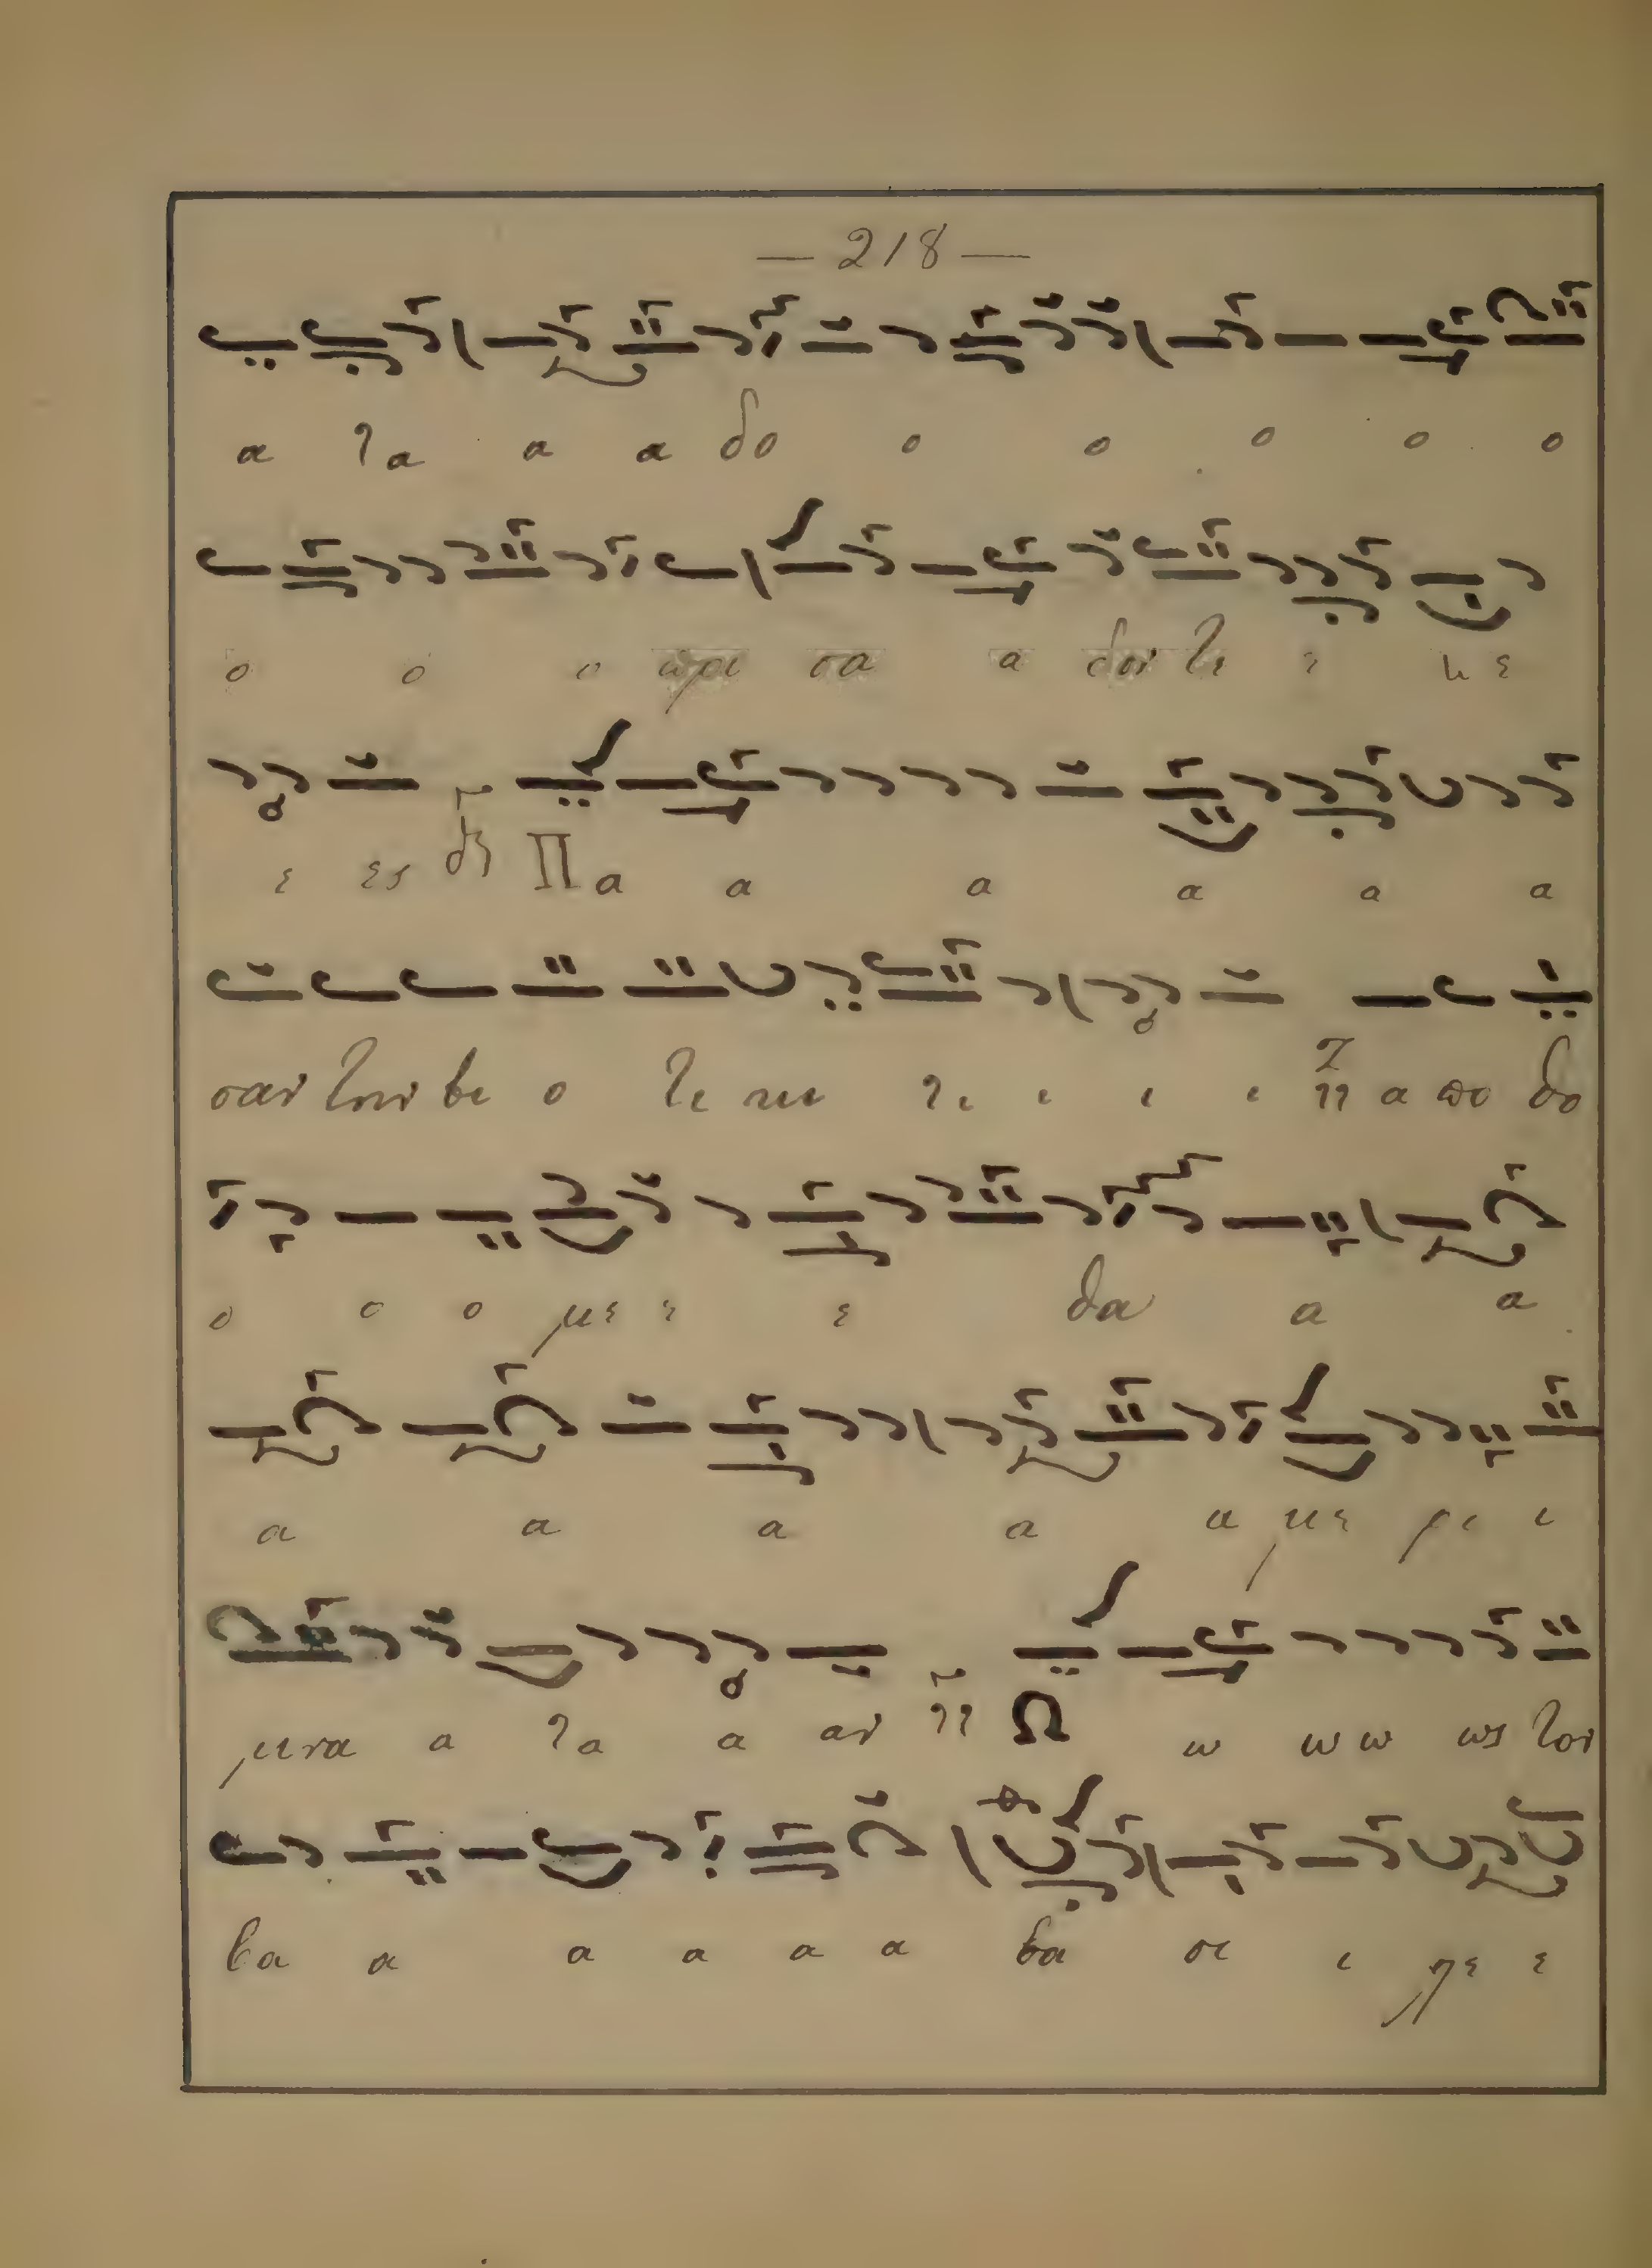 — 218 —
α τα α α δο ο ο ο ο ο
ο ο ο ωρι σα α δοι τε ε κε
ε ες δι Πα α α α α α
σαν τον βι ο τι τι ι ι ι α πο δο
ο ο ο με ε ε δα α α
α α α α α με ρι ι
μνα α τα α αν Ω ω ω ω ως τον
βα α α α α α βα σι ι λε ε